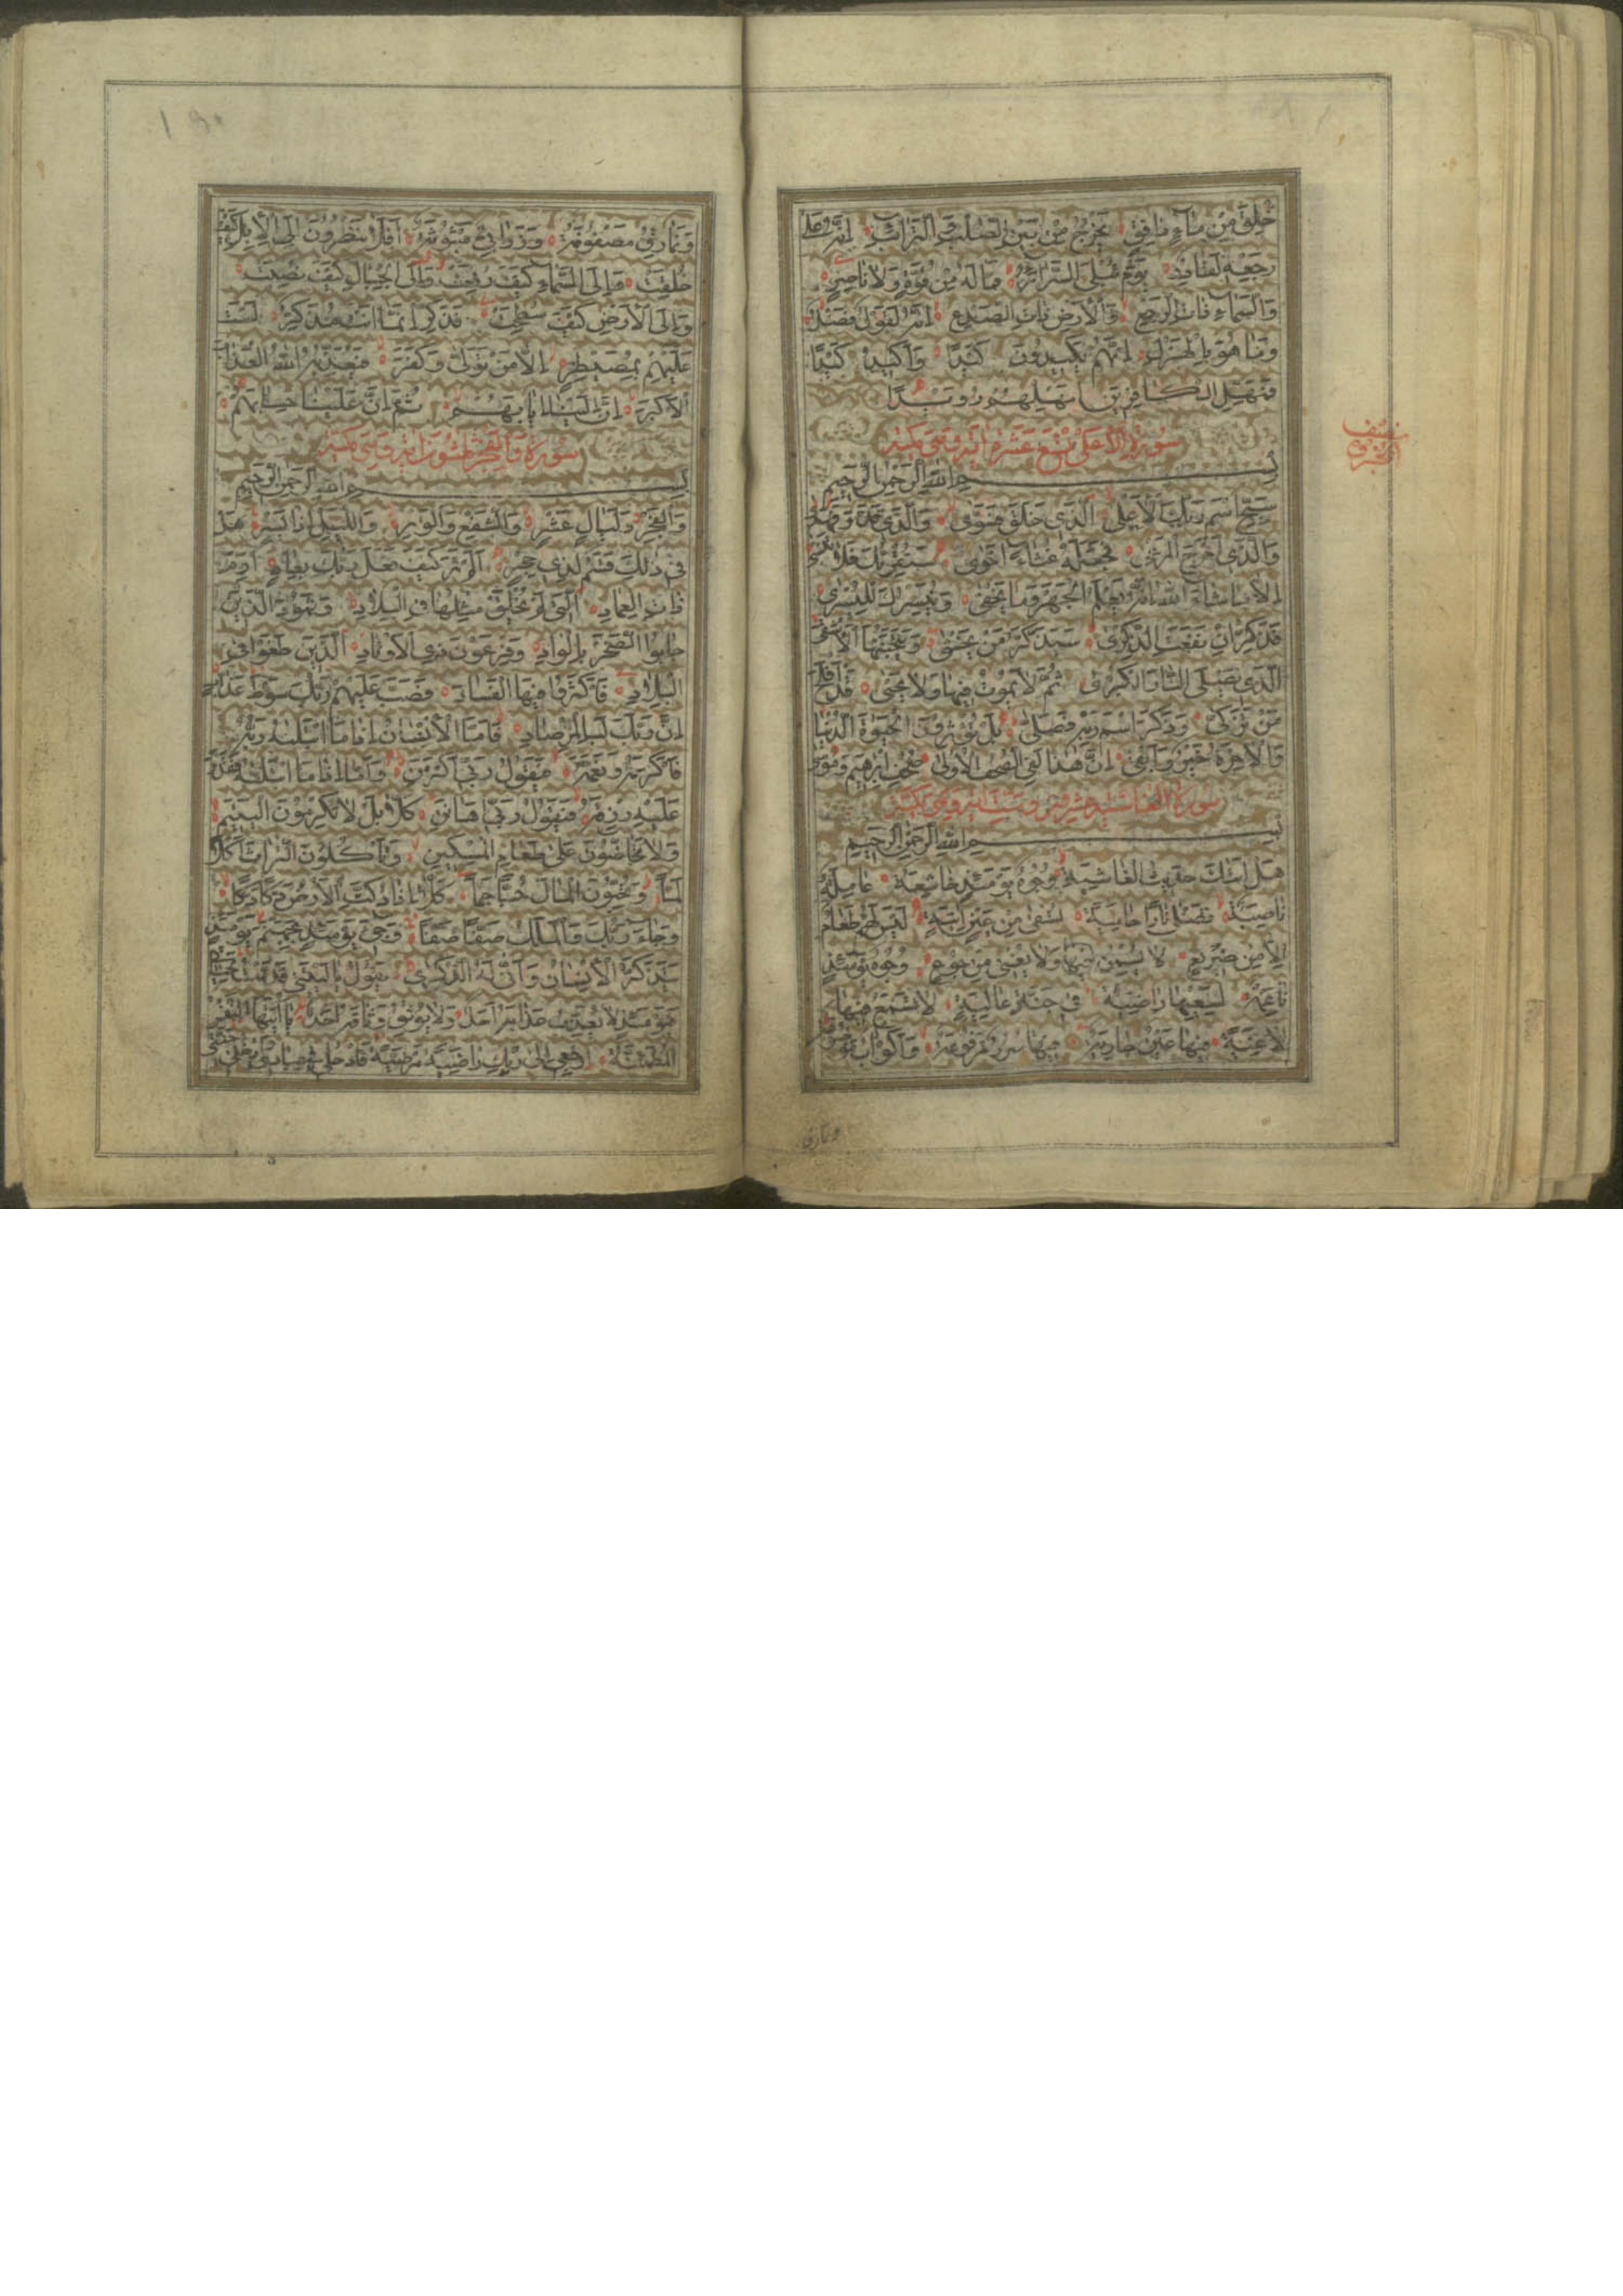 خُلِقَ مِنْ مَآءٍ دَافِقٍ يَخْرُجُ مِنْ بَيْنِ الصُّلْبِ وَالتَّرَآئِبِ اِنَّهُ عَلٰى
رَجْعِهٖ لَقَادِرٌ يَوْمَ تُبْلَى السَّرَآئِرُ فَمَا لَهُ مِنْ قُوَّةٍ وَلَا نَاصِرٍ
وَالسَّمَآءِ ذَاتِ الرَّجْعِ وَالْاَرْضِ ذَاتِ الصَّدْعِ اِنَّهُ لَقَوْلٌ فَصْلٌ
وَمَا هُوَ بِالْهَزْلِ اِنَّهُمْ يَكِيدُونَ كَيْدًا وَاَكِيدُ كَيْدًا
فَمَهِّلِ الْكَافِرِينَ اَمْهِلْهُمْ رُوَيْدًا
سورة الاعلى تسع عشرة اية وهى مكية
بِسْمِ اللهِ الرَّحْمٰنِ الرَّحِيمِ
سَبِّحِ اسْمَ رَبِّكَ الْاَعْلٰى اَلَّذِى خَلَقَ فَسَوّٰى وَالَّذِى قَدَّرَ فَهَدٰى
وَالَّذِى اَخْرَجَ الْمَرْعٰى فَجَعَلَهُ غُثَآءً اَحْوٰى سَنُقْرِئُكَ فَلَا تَنْسٰى
اِلَّا مَا شَآءَ اللهُ اِنَّهُ يَعْلَمُ الْجَهْرَ وَمَا يَخْفٰى وَنُيَسِّرُكَ لِلْيُسْرٰى
فَذَكِّرْ اِنْ نَفَعَتِ الذِّكْرٰى سَيَذَّكَّرُ مَنْ يَخْشٰى وَيَتَجَنَّبُهَا الْاَشْقٰى
اَلَّذِى يَصْلَى النَّارَ الْكُبْرٰى ثُمَّ لَا يَمُوتُ فِيهَا وَلَا يَحْيٰى قَدْ اَفْلَحَ
مَنْ تَزَكّٰى وَذَكَرَ اسْمَ رَبِّهٖ فَصَلّٰى بَلْ تُؤْثِرُونَ الْحَيٰوةَ الدُّنْيَا
وَالْاٰخِرَةُ خَيْرٌ وَاَبْقٰى اِنَّ هٰذَا لَفِى الصُّحُفِ الْاُولٰى صُحُفِ اِبْرٰهِيمَ وَمُوسٰى
سورة الغاشية عشرون وست اية وهى مكية
بِسْمِ اللهِ الرَّحْمٰنِ الرَّحِيمِ
هَلْ اَتٰيكَ حَدِيثُ الْغَاشِيَةِ وُجُوهٌ يَوْمَئِذٍ خَاشِعَةٌ عَامِلَةٌ
نَاصِبَةٌ تَصْلٰى نَارًا حَامِيَةً تُسْقٰى مِنْ عَيْنٍ اٰنِيَةٍ لَيْسَ لَهُمْ طَعَامٌ
اِلَّا مِنْ ضَرِيعٍ لَا يُسْمِنُ وَلَا يُغْنِى مِنْ جُوعٍ وُجُوهٌ يَوْمَئِذٍ
نَاعِمَةٌ لِسَعْيِهَا رَاضِيَةٌ فِى جَنَّةٍ عَالِيَةٍ لَا تَسْمَعُ فِيهَا
لَاغِيَةً فِيهَا عَيْنٌ جَارِيَةٌ فِيهَا سُرُرٌ مَرْفُوعَةٌ وَاَكْوَابٌ مَوْضُوعَةٌ
ونمارق
نصف
وَنَمَارِقُ مَصْفُوفَةٌ وَزَرَابِىُّ مَبْثُوثَةٌ اَفَلَا يَنْظُرُونَ اِلَى الْاِبِلِ كَيْفَ
خُلِقَتْ وَاِلَى السَّمَآءِ كَيْفَ رُفِعَتْ وَاِلَى الْجِبَالِ كَيْفَ نُصِبَتْ
وَاِلَى الْاَرْضِ كَيْفَ سُطِحَتْ فَذَكِّرْ اِنَّمَا اَنْتَ مُذَكِّرٌ لَسْتَ
عَلَيْهِمْ بِمُصَيْطِرٍ اِلَّا مَنْ تَوَلّٰى وَكَفَرَ فَيُعَذِّبُهُ اللهُ الْعَذَابَ
الْاَكْبَرَ اِنَّ اِلَيْنَا اِيَابَهُمْ ثُمَّ اِنَّ عَلَيْنَا حِسَابَهُمْ
سورة والفجر ثلثون اية وهى مكية
بِسْمِ اللهِ الرَّحْمٰنِ الرَّحِيمِ
وَالْفَجْرِ وَلَيَالٍ عَشْرٍ وَالشَّفْعِ وَالْوَتْرِ وَاللَّيْلِ اِذَا يَسْرِ هَلْ
فِى ذٰلِكَ قَسَمٌ لِذِى حِجْرٍ اَلَمْ تَرَ كَيْفَ فَعَلَ رَبُّكَ بِعَادٍ اِرَمَ
ذَاتِ الْعِمَادِ اَلَّتِى لَمْ يُخْلَقْ مِثْلُهَا فِى الْبِلَادِ وَثَمُودَ الَّذِينَ
جَابُوا الصَّخْرَ بِالْوَادِ وَفِرْعَوْنَ ذِى الْاَوْتَادِ اَلَّذِينَ طَغَوْا فِى
الْبِلَادِ فَاَكْثَرُوا فِيهَا الْفَسَادَ فَصَبَّ عَلَيْهِمْ رَبُّكَ سَوْطَ عَذَابٍ
اِنَّ رَبَّكَ لَبِالْمِرْصَادِ فَاَمَّا الْاِنْسَانُ اِذَا مَا ابْتَلٰيهُ رَبُّهُ
فَاَكْرَمَهُ وَنَعَّمَهُ فَيَقُولُ رَبِّى اَكْرَمَنِ وَاَمَّا اِذَا مَا ابْتَلٰيهُ فَقَدَرَ
عَلَيْهِ رِزْقَهُ فَيَقُولُ رَبِّى اَهَانَنِ كَلَّا بَلْ لَا تُكْرِمُونَ الْيَتِيمَ
وَلَا تَحَاضُّونَ عَلٰى طَعَامِ الْمِسْكِينِ وَتَاْكُلُونَ التُّرَاثَ اَكْلًا
لَمًّا وَتُحِبُّونَ الْمَالَ حُبًّا جَمًّا كَلَّا اِذَا دُكَّتِ الْاَرْضُ دَكًّا دَكًّا
وَجَآءَ رَبُّكَ وَالْمَلَكُ صَفًّا صَفًّا وَجِىءَ يَوْمَئِذٍ بِجَهَنَّمَ يَوْمَئِذٍ
يَتَذَكَّرُ الْاِنْسَانُ وَاَنّٰى لَهُ الذِّكْرٰى يَقُولُ يَا لَيْتَنِى قَدَّمْتُ لِحَيَاتِى
فَيَوْمَئِذٍ لَا يُعَذِّبُ عَذَابَهُ اَحَدٌ وَلَا يُوثِقُ وَثَاقَهُ اَحَدٌ يَا اَيَّتُهَا النَّفْسُ
الْمُطْمَئِنَّةُ اِرْجِعِى اِلٰى رَبِّكِ رَاضِيَةً مَرْضِيَّةً فَادْخُلِى فِى عِبَادِى وَادْخُلِى جَنَّتِى